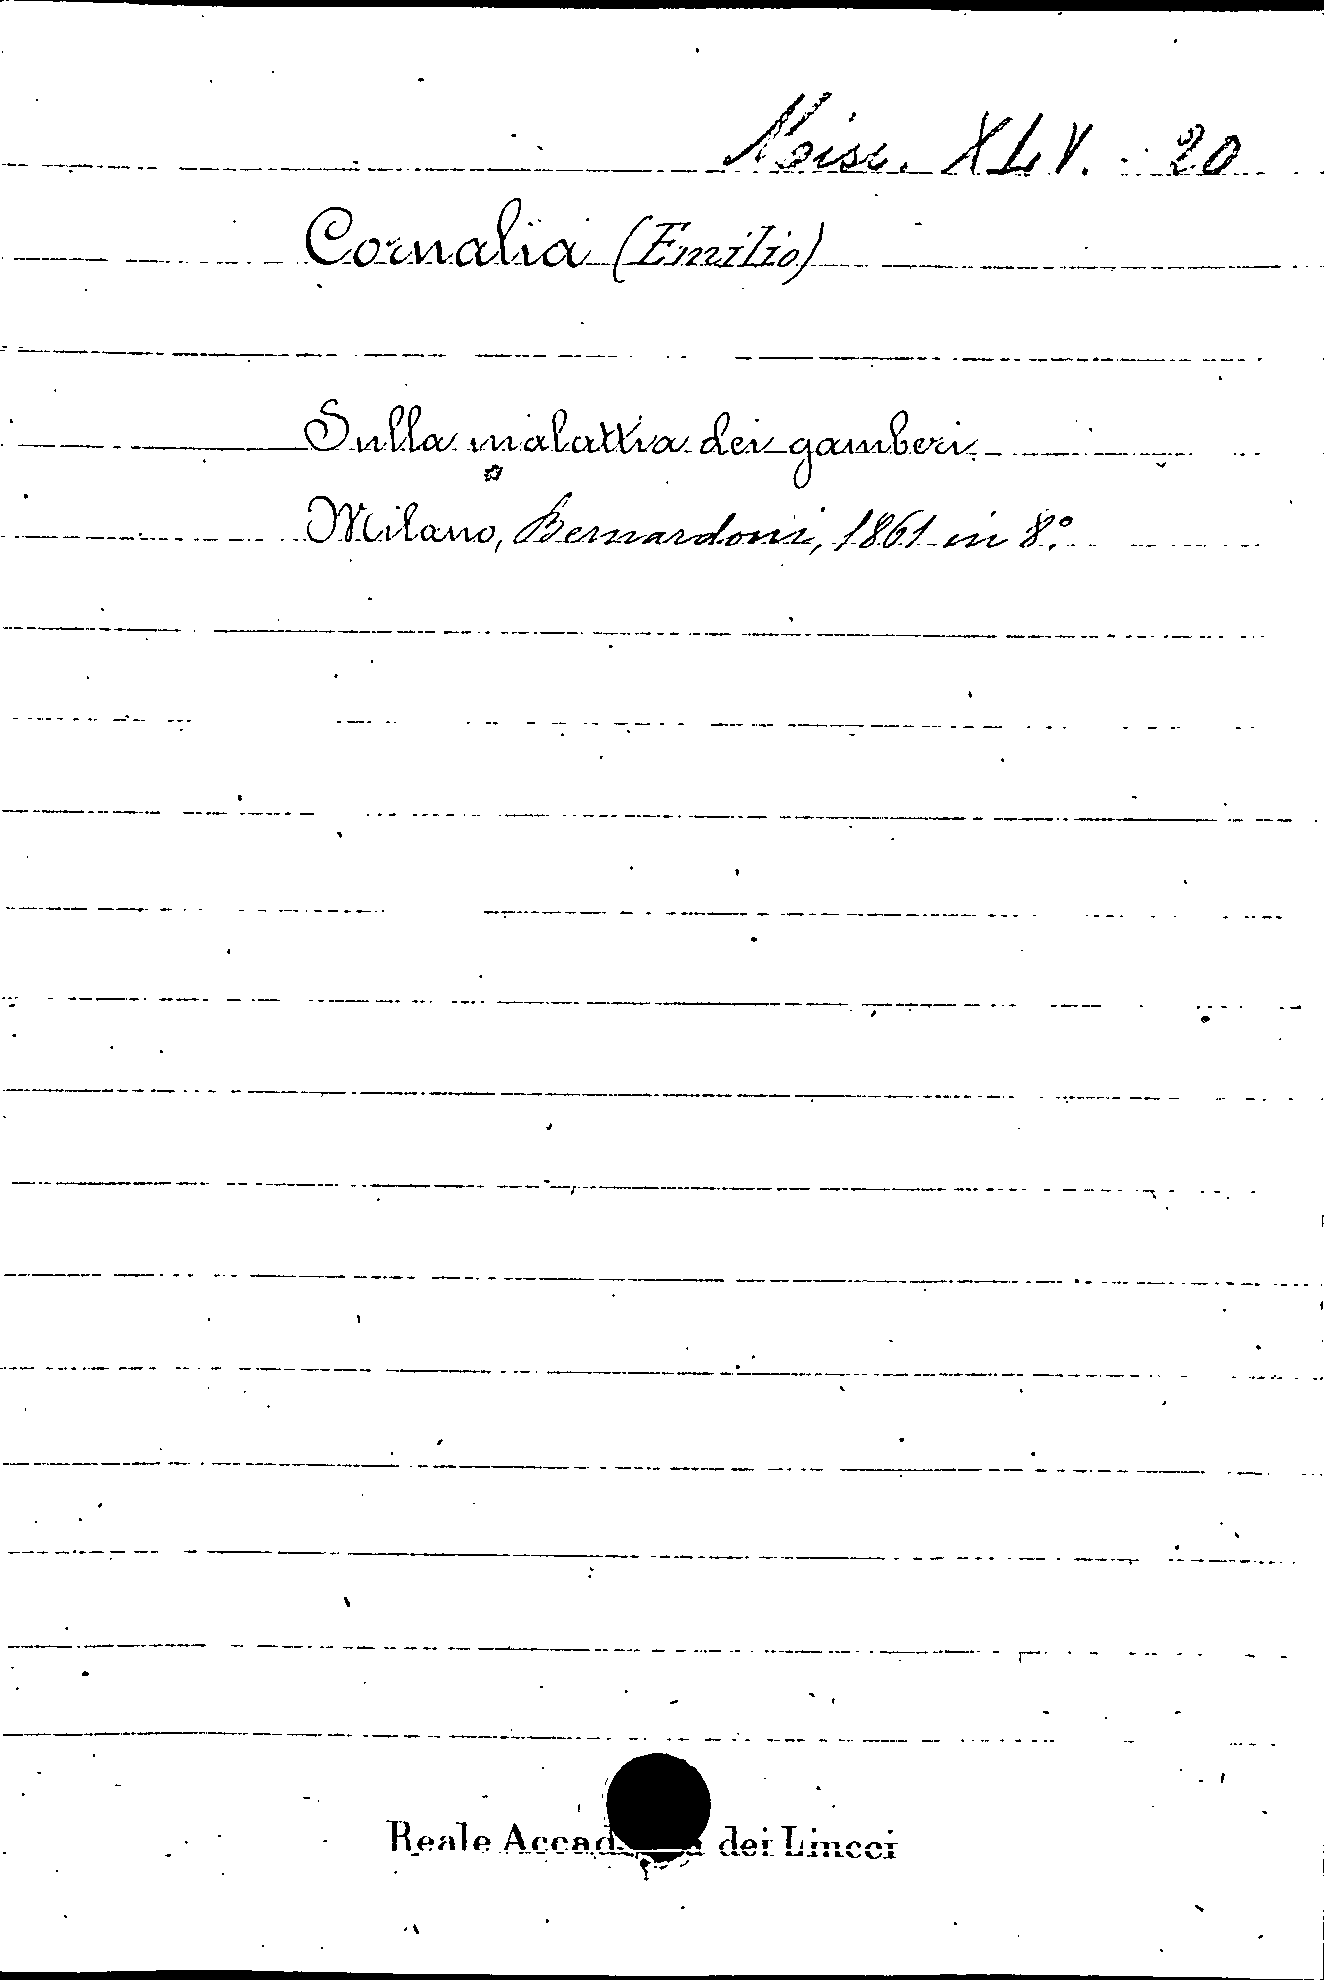 Misc. XLV. 20
Cornalia (Emilio)
Sulla malattia dei gamberi
Milano, Bernardoni, 1861 in 8º
Reale Accad a dei Lincei